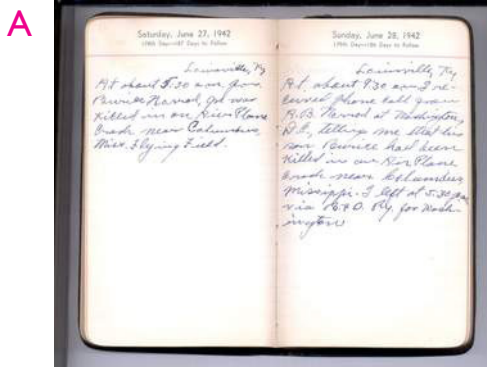 A
Saturday, June 27, 1942
178th Day—187 Days to Follow
Louisville, Ky
At about 5:30 a.m. Geo.
Burnice Named, Jr. was
killed in an Air Plane
Crash near Columbus,
Miss. Flying Field.
Sunday, June 28, 1942
179th Day—186 Days to Follow
Louisville, Ky.
At about 9:30 a.m. I re-
ceived phone call from
R.B. Named at Washington,
D.C., telling me that his
son Burnice had been
killed in an Air Plane
crash near Columbus,
Mississippi. I left at 5:30 pm
via B. & O. Ry. for Wash-
ington